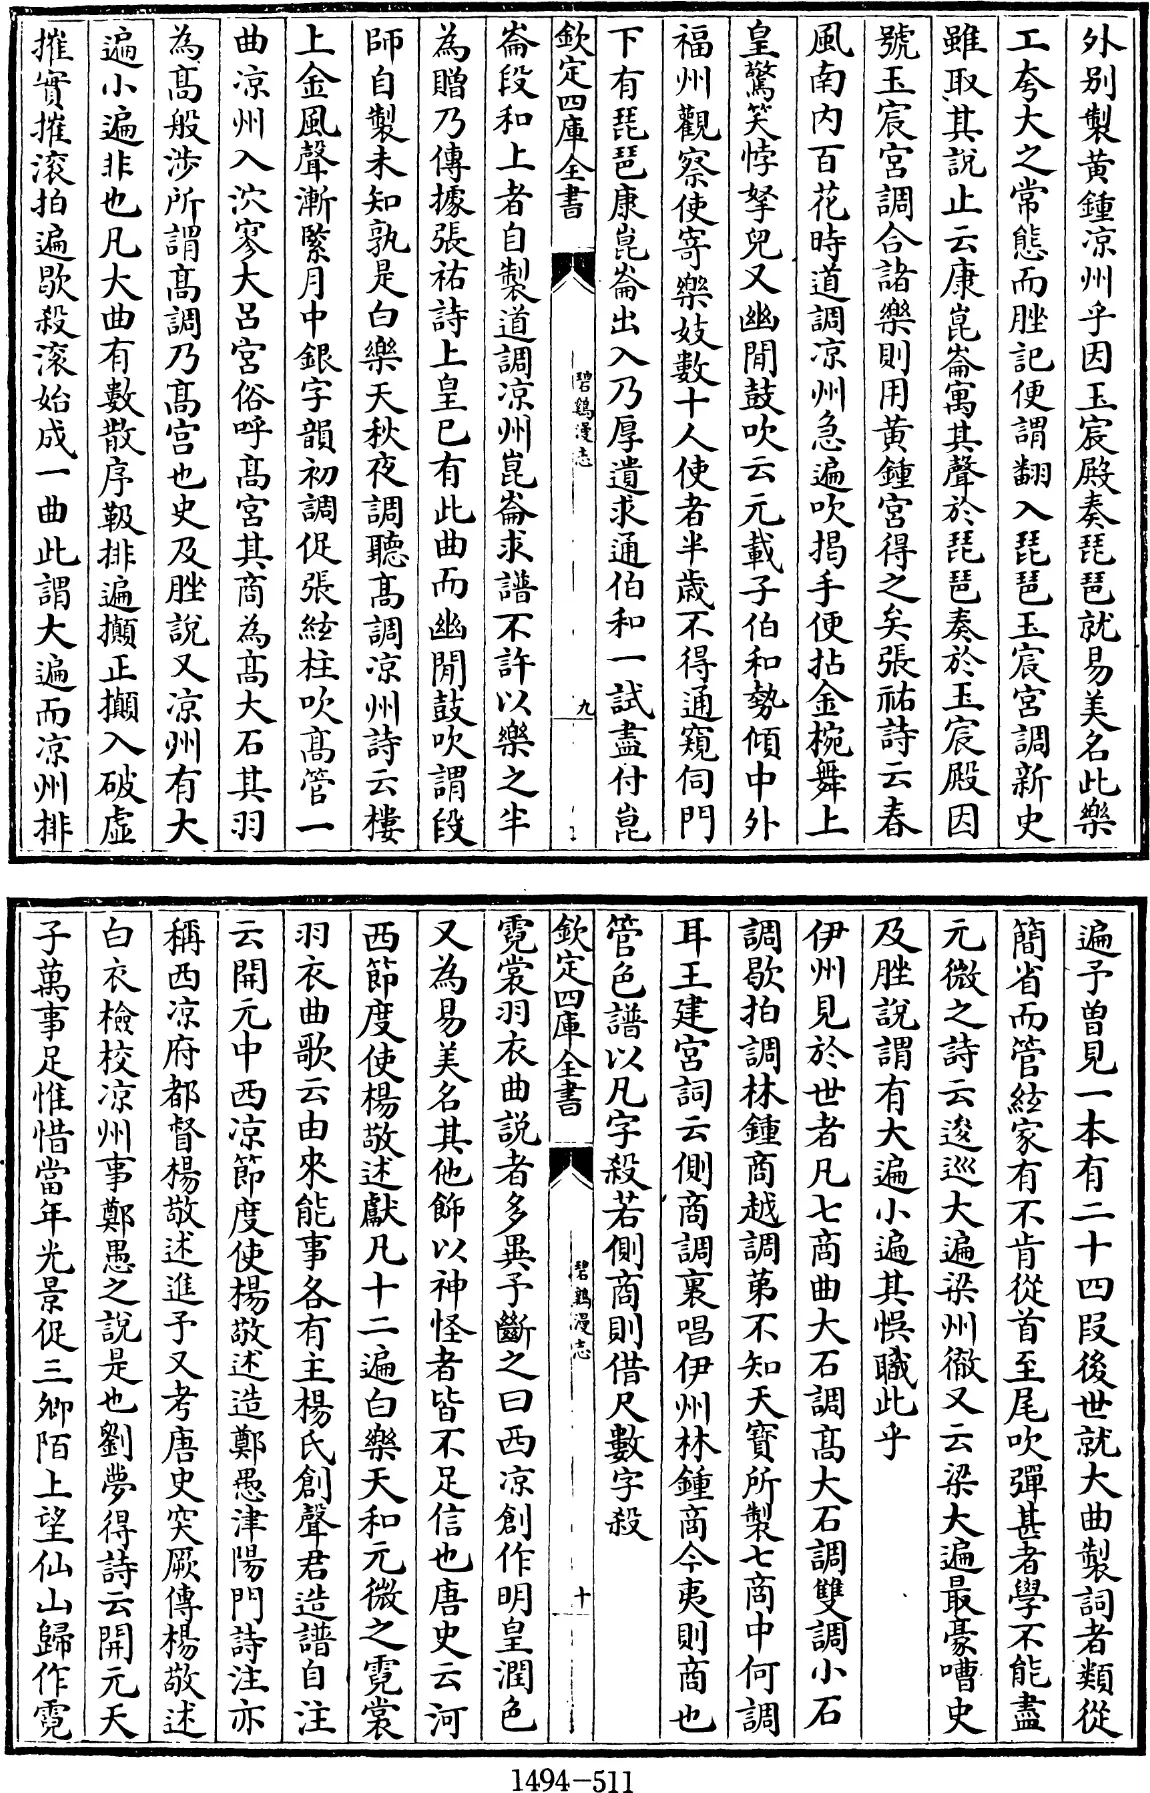 外别製黄鍾凉州乎因玉宸殿奏琵琶就易美名此樂
工夸大之常態而脞記便謂翻入琵琶玉宸宮調新史
雖取其說止云康崑崙寓其聲於琵琶奏於玉宸殿因
號玉宸宮調合諸樂則用黄鍾宮得之矣張祜詩云春
風南内百花時道調凉州急遍吹揭手便拈金椀舞上
皇驚笑悖拏兒又幽閒鼓吹云元載子伯和勢傾中外
福州觀察使寄樂妓數十人使者半歲不得通窺伺門
下有琵琶康崑崙出入乃厚遺求通伯和一試盡付崑
欽定四庫全書 碧鷄漫志 九
崙段和上者自製道調凉州崑崙求譜不許以樂之半
為贈乃傳據張祜詩上皇已有此曲而幽閒鼓吹謂段
師自製未知孰是白樂天秋夜調聽髙調凉州詩云樓
上金風聲漸緊月中銀字韻初調促張絃柱吹髙管一
曲凉州入泬寥大吕宮俗呼髙宮其商為髙大石其羽
為髙般涉所謂髙調乃髙宮也史及脞說又凉州有大
遍小遍非也凡大曲有數散序靸排遍攧正攧入破虛
摧實摧滚拍遍歇殺滚始成一曲此謂大遍而凉州排
遍予曾見一本有二十四段後世就大曲製詞者類從
簡省而管絃家有不肯從首至尾吹彈甚者學不能盡
元微之詩云逡巡大遍梁州徹又云梁大遍最豪嘈史
及脞說謂有大遍小遍其悞職此乎
伊州見於世者凡七商曲大石調髙大石調雙調小石
調歇拍調林鍾商越調第不知天寳所製七商中何調
耳王建宮詞云側商調裏唱伊州林鍾商今夷則商也
管色譜以凡字殺若側商則借尺數字殺
欽定四庫全書 碧鷄漫志 十
霓裳羽衣曲說者多異予斷之曰西凉創作明皇潤色
又為易美名其他飾以神怪者皆不足信也唐史云河
西節度使楊敬述獻凡十二遍白樂天和元微之霓裳
羽衣曲歌云由來能事各有主楊氏創聲君造譜自注
云開元中西凉節度使楊敬述造鄭愚津陽門詩注亦
稱西凉府都督楊敬述進予又考唐史突厥傳楊敬述
白衣檢校凉州事鄭愚之說是也劉夢得詩云開元天
子萬事足惟惜當年光景促三鄉陌上望仙山歸作霓
1494-511